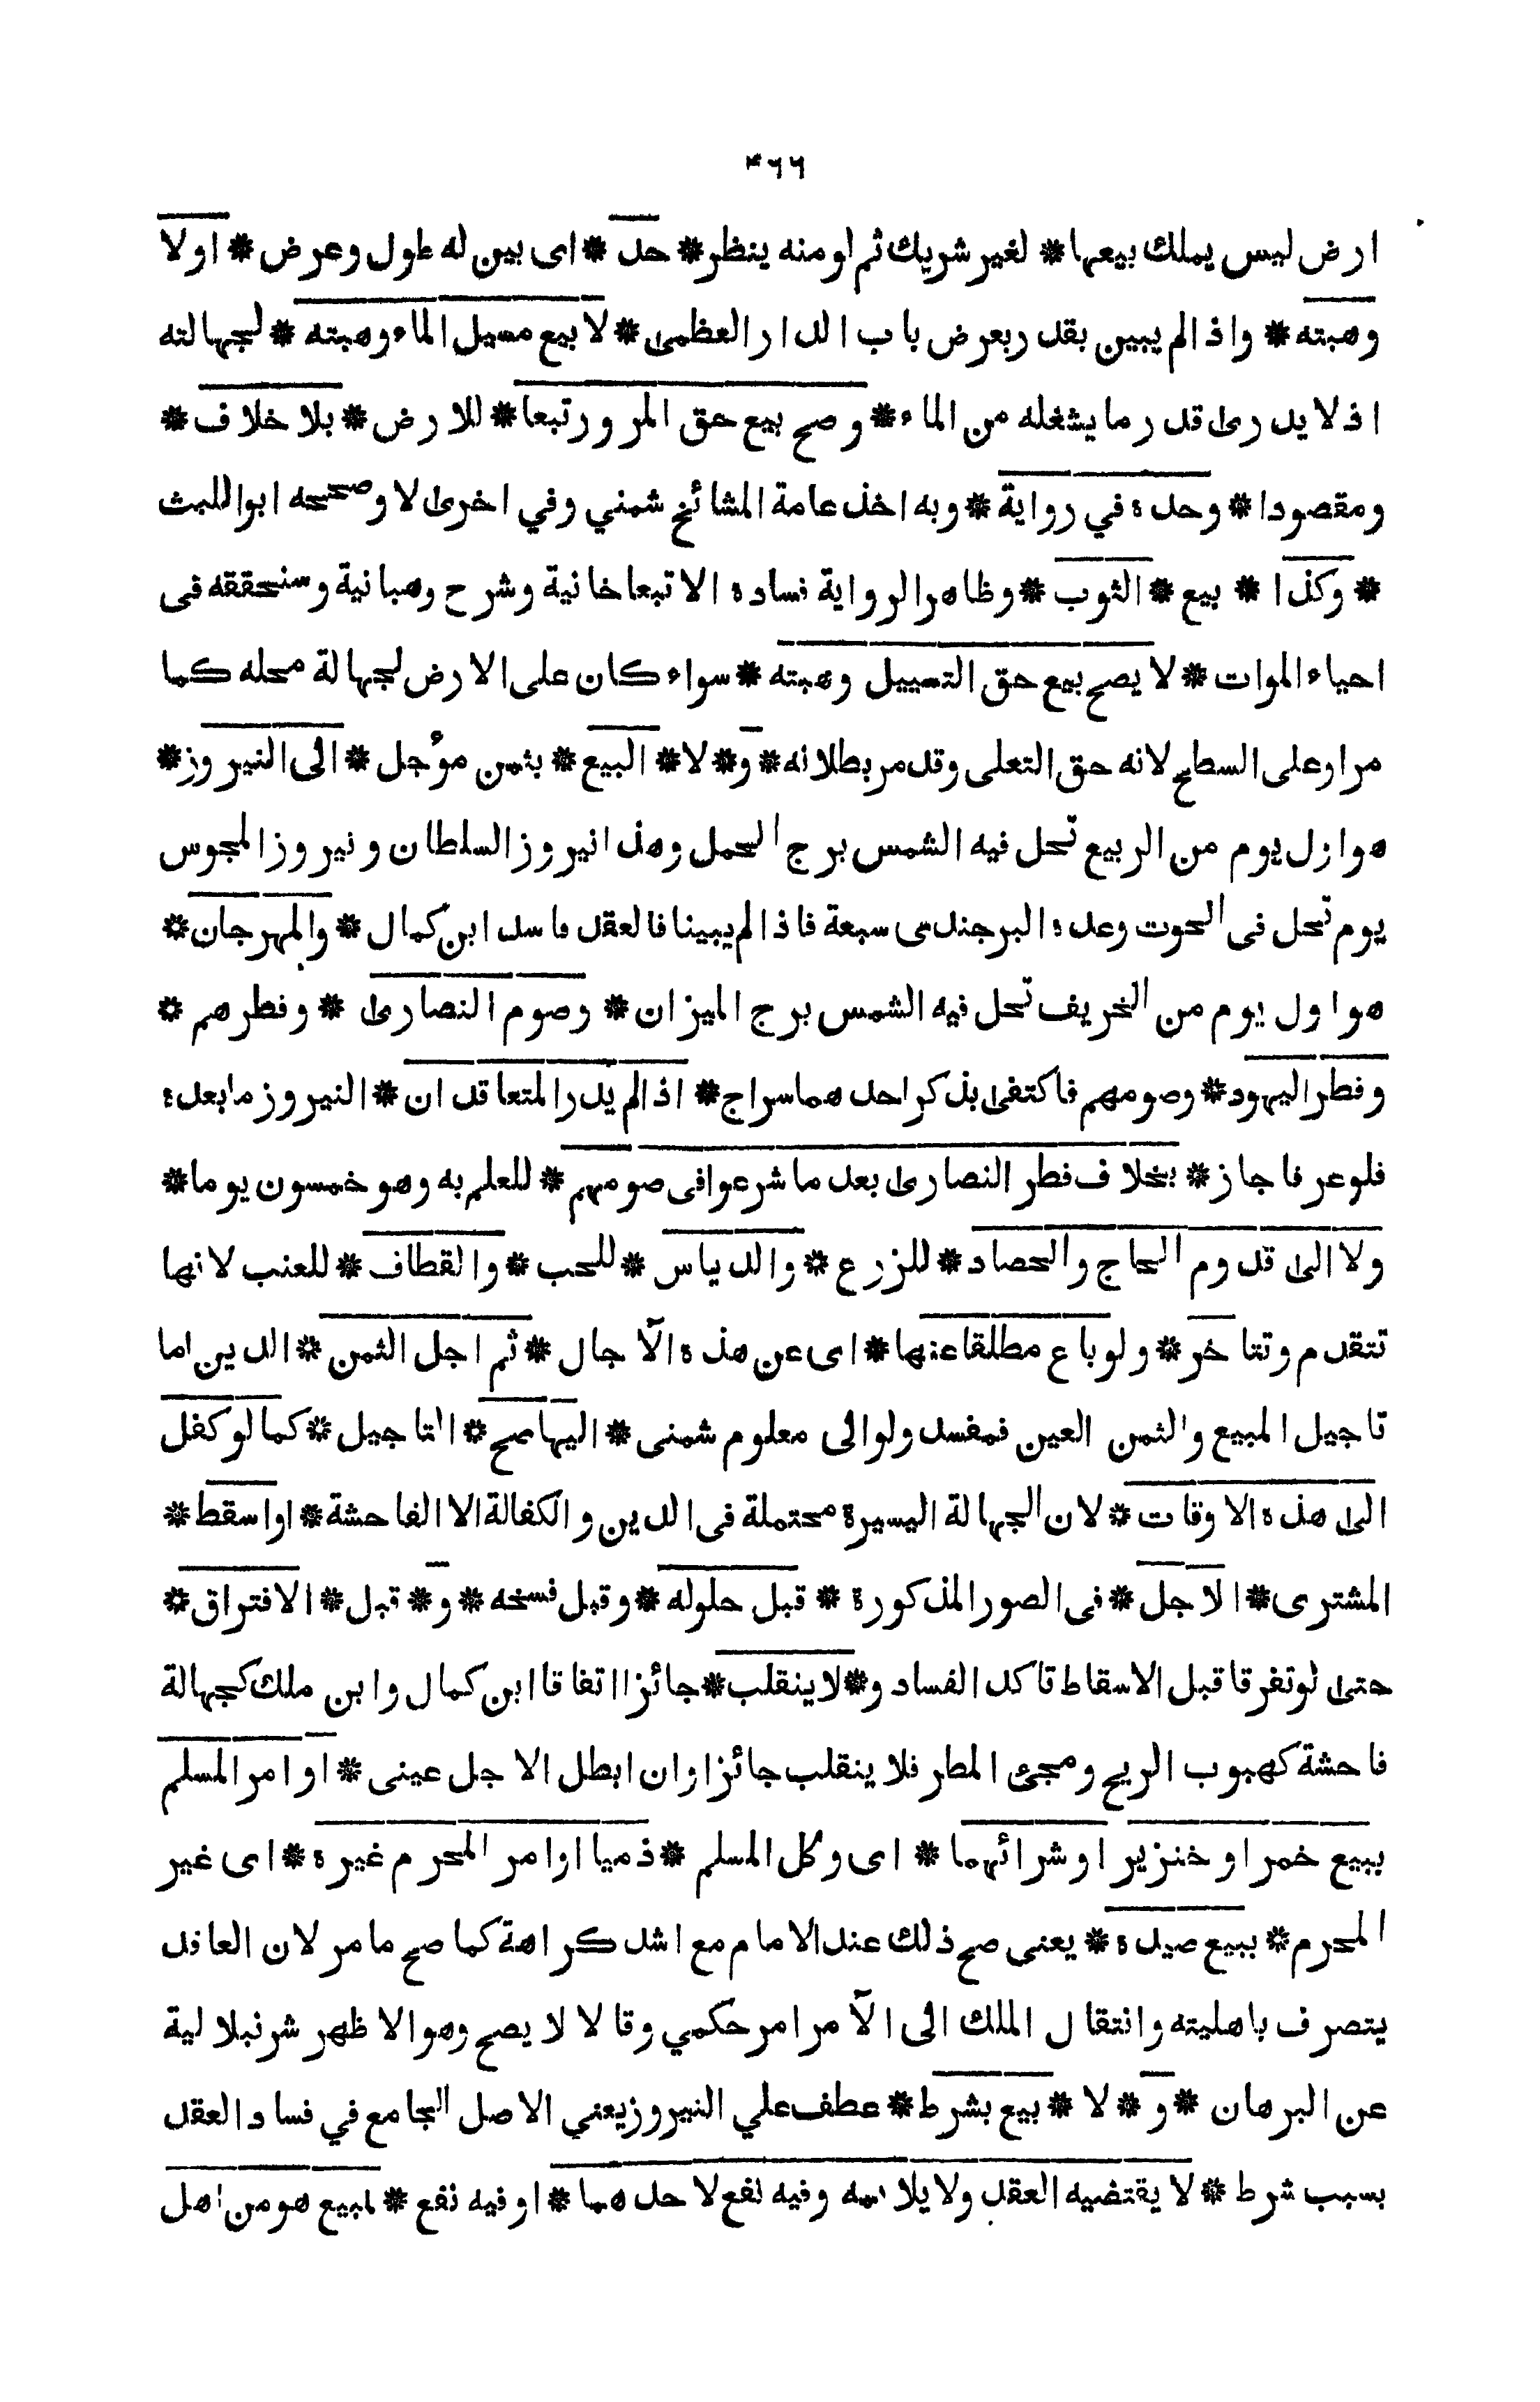 ۴۶۶
ارض ليس يملك بيعها * لغير شريك ثم لو منه ينظر * حد * اى بين له طول وعرض * اولا
وهبته * واذا لم يبين بقدر بعرض باب الدار العظمى * لا بيع مسيل الماء وهبته * لجهالته
اذ لا يدرى قدر ما يشغله من الماء * وصح بيع حق المرور تبعا * للارض * بلا خلاف *
ومقصودا * وحده في رواية * وبه اخذ عامة المشائخ شمني وفي اخرى لا وصححه ابوالليث
* وكذا * بيع * الثوب * وظاهر الرواية فساده الا تبعا خانية وشرح وهبانية وسنحققه فى
احياء الموات * لا يصح بيع حق التسييل وهبته * سواء كان على الارض لجهالة محله كما
مر او على السطح لانه حق التعلى وقد مر بطلانه * و * لا * البيع * بثمن مؤجل * الى النيروز *
هو اول يوم من الربيع تحل فيه الشمس برج الحمل وهذا نيروز السلطان ونيروز المجوس
يوم تحل فى الحوت وعده البرجندى سبعة فاذا لم يبينا فالعقد فاسد ابن كمال * والمهرجان *
هو اول يوم من الخريف تحل فيه الشمس برج الميزان * وصوم النصارى * وفطرهم *
وفطر اليهود * وصومهم فاكتفى بذكر احدهما سراج * اذا لم يدر المتعاقدان * النيروز مابعده
فلو عرفا جاز * بخلاف فطر النصارى بعد ما شرعوا فى صومهم * للعلم به وهو خمسون يوما *
ولا الى قدوم الحاج والحصاد * للزرع * والدياس * للحب * والقطاف * للعنب لانها
تتقدم وتتاخر * ولو باع مطلقا عنها * اى عن هذه الآجال * ثم اجل الثمن * الدين اما
تاجيل المبيع والثمن العين فمفسد ولو الى معلوم شمنى * اليها صح * التاجيل * كما لو كفل
الى هذه الاوقات * لان الجهالة اليسيرة محتملة فى الدين والكفالة الا الفاحشة * او اسقط *
المشترى * الاجل * فى الصور المذكورة * قبل حلوله * وقبل فسخه * و * قبل * الافتراق *
حتى لو تفرقا قبل الاسقاط تاكد الفساد و * لا ينقلب * جائزا اتفاقا ابن كمال وابن ملك كجهالة
فاحشة كهبوب الريح ومجئ المطر فلا ينقلب جائزا وان ابطل الاجل عينى * او امر المسلم
ببيع خمر او خنزير او شرائهما * اى وكل المسلم * ذميا او امر المحرم غيره * اى غير
المحرم * ببيع صيده * يعنى صح ذلك عند الامام مع اشد كراهة كما صح ما مر لان العاقد
يتصرف باهليته وانتقال الملك الى الآمر امر حكمي وقالا لا يصح وهو الاظهر شرنبلالية
عن البرهان * و * لا * بيع بشرط * عطف علي النيروز يعني الاصل الجامع في فساد العقد
بسبب شرط * لا يقتضيه العقد ولا يلائمه وفيه نفع لاحدهما * او فيه نفع * لمبيع هو من اهل